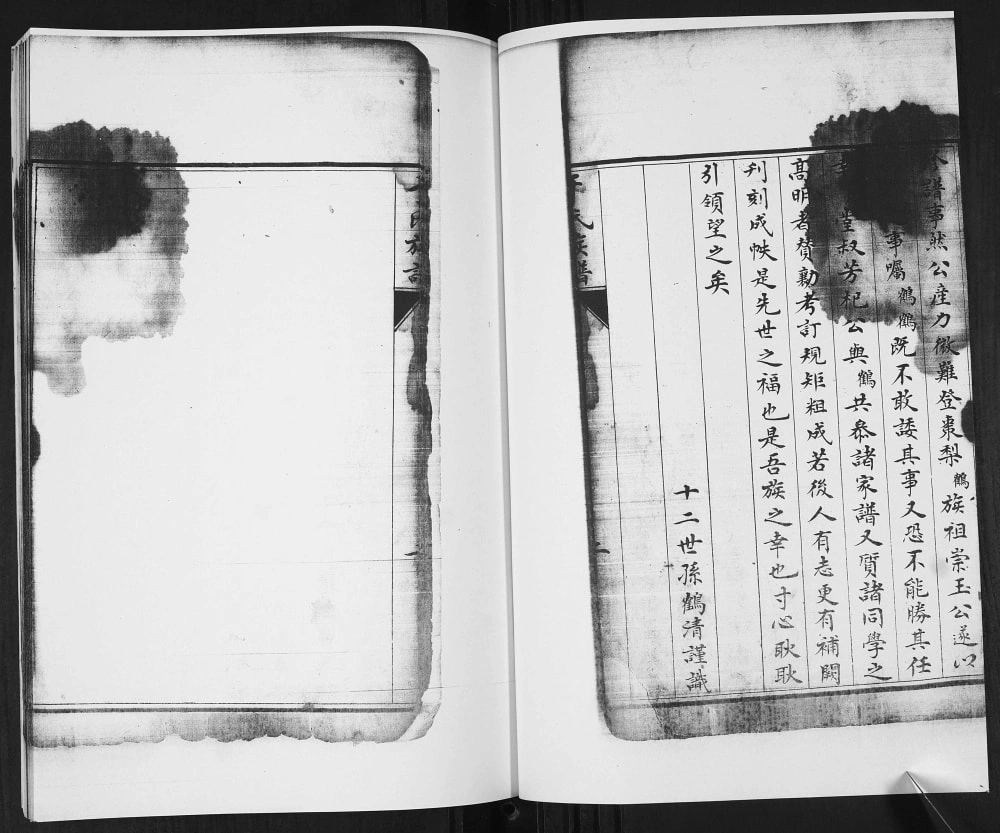 譜事然公産力微難登棗梨鶴族祖崇玉公遂以
事囑鶴鶴既不敢諉其事又恐不能勝其任
堂叔芳杞公與鶴共叅諸家譜又質諸同學之
高明者贊勷考訂規矩粗成若後人有志更有補闕
刋刻成帙是先世之福也是吾族之幸也寸心耿耿
引領望之矣
十二世孫鶴清謹識
氏族譜
二
氏族譜